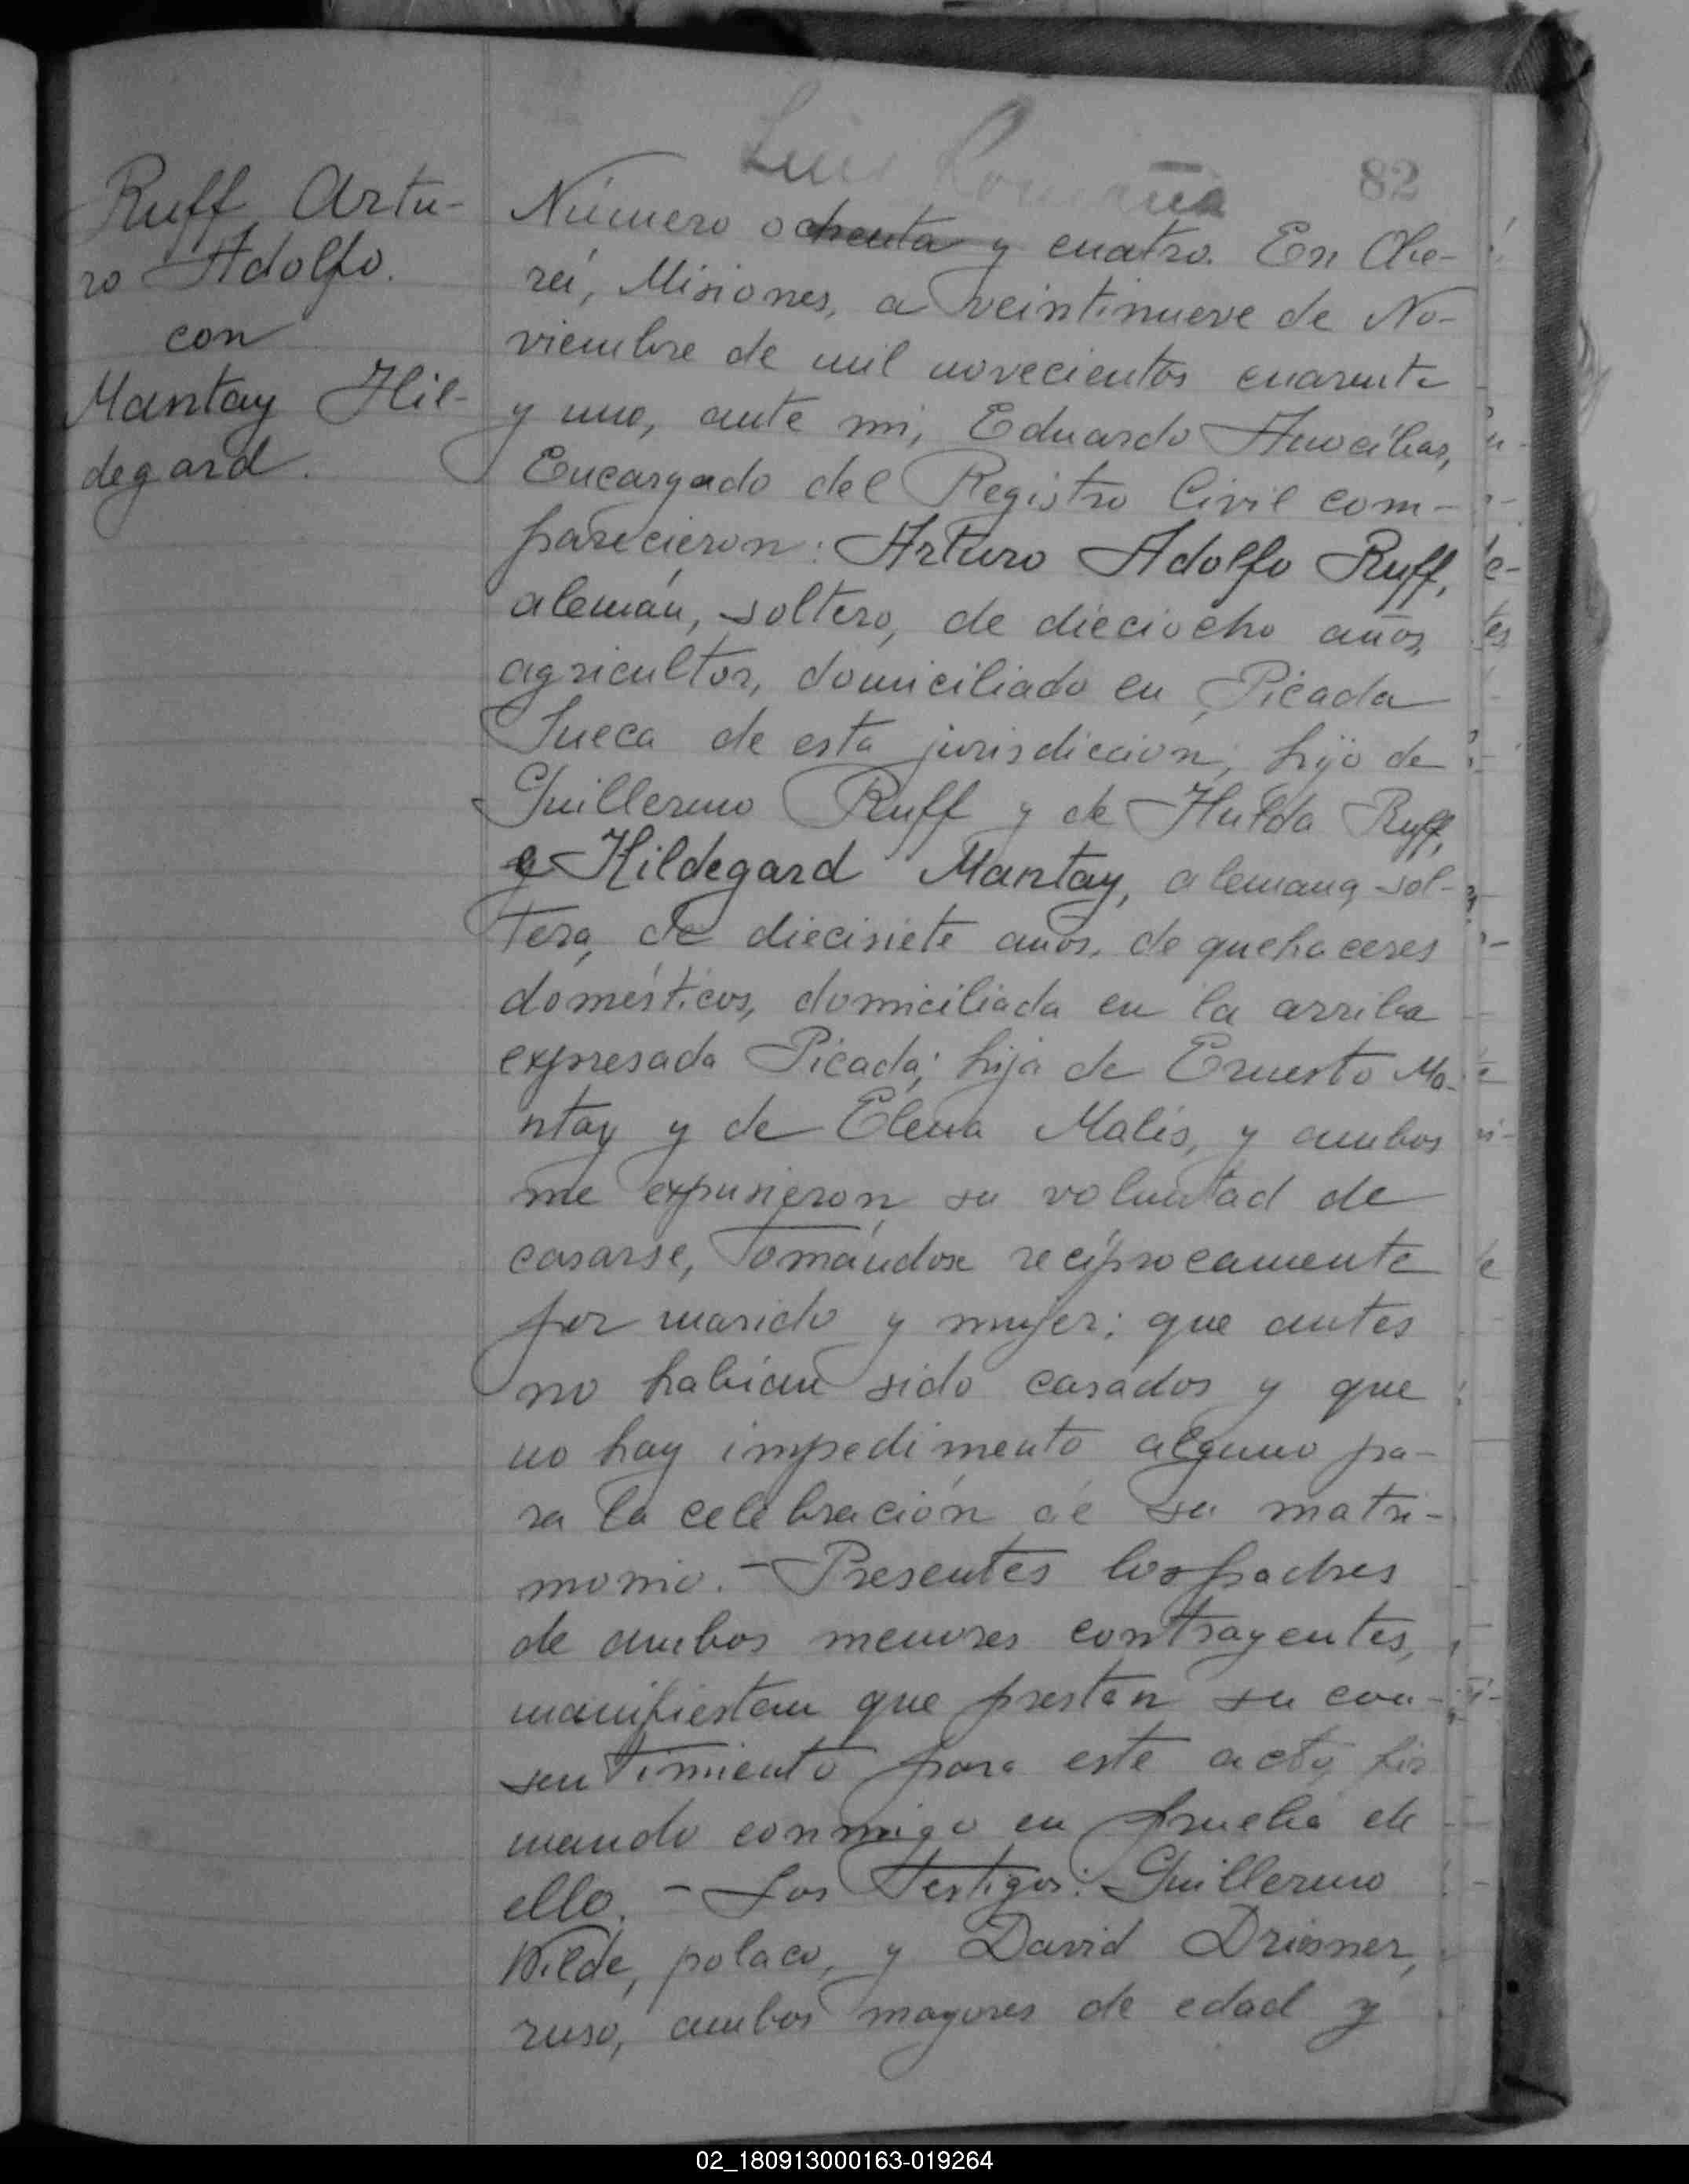 Luis Romaña
82
Ruff Artu-
ro Adolfo.
con
Mantay Hil-
degard.
Número ochenta y cuatro. En Obe-
rá, Misiones, a veintinueve de No-
viembre de mil novecientos cuarenta
y uno, ante mi, Eduardo
Encargado del Registro Civil com-
parecieron: Arturo Adolfo Ruff,
alemán, soltero, de dieciocho años,
agricultor, domiciliado en Picada
Sueca de esta jurisdicción, hijo de
Guillermo Ruff y de Hulda Ruff,
y Hildegard Mantay, alemana, sol-
tera, de diecisiete años, de quehaceres
domésticos, domiciliada en la arriba
expresada Picada; hija de Ernesto Ma-
ntay y de Elena Malis, y ambos
me expusieron su voluntad de
casarse, tomándose recíprocamente
por marido y mujer; que antes
no habían sido casados y que
no hay impedimento alguno pa-
ra la celebración de su matri-
monio. - Presentes los padres
de ambos menores contrayentes,
manifiestan que prestan su con-
sentimiento para este acto, fir
mando conmigo en prueba de
ello. - Los Testigos: Guillermo
Wilde, polaco, y David Driesner,
ruso, ambos mayores de edad y
02_180913000163-019264